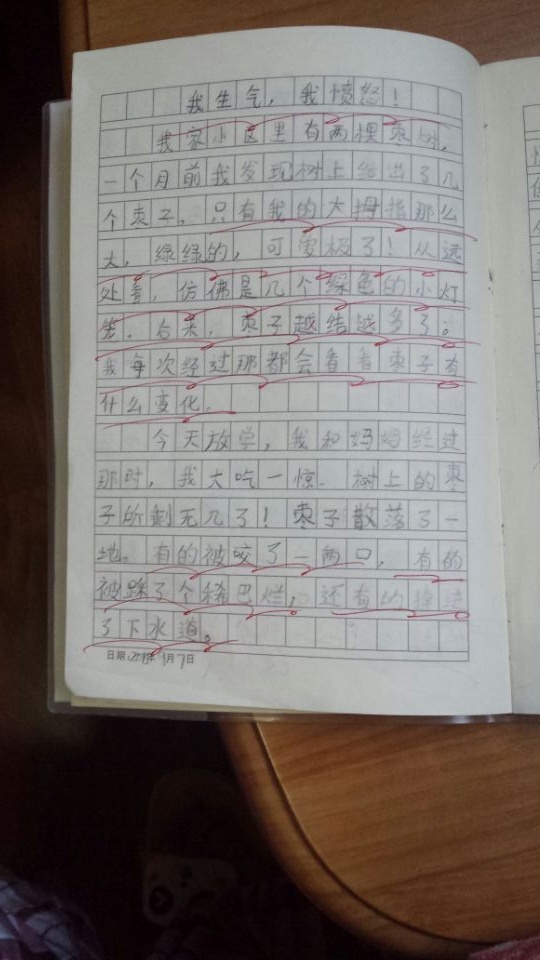 我生气，我愤怒！
我家小区里有两棵枣树，
一个月前我发现树上结出了几
个枣子，只有我的大拇指那么
大，绿绿的，可爱极了！从远
处看，仿佛是几个绿色的小灯
笼。后来，枣子越结越多了。
我每次经过那都会看看枣子有
什么变化。
今天放学，我和妈妈经过
那时，我大吃一惊。树上的枣
子所剩无几了！枣子散落了一
地。有的被咬了一两口，有的
被踩了个稀巴烂，还有的掉进
了下水道。
日期 年 1月7日